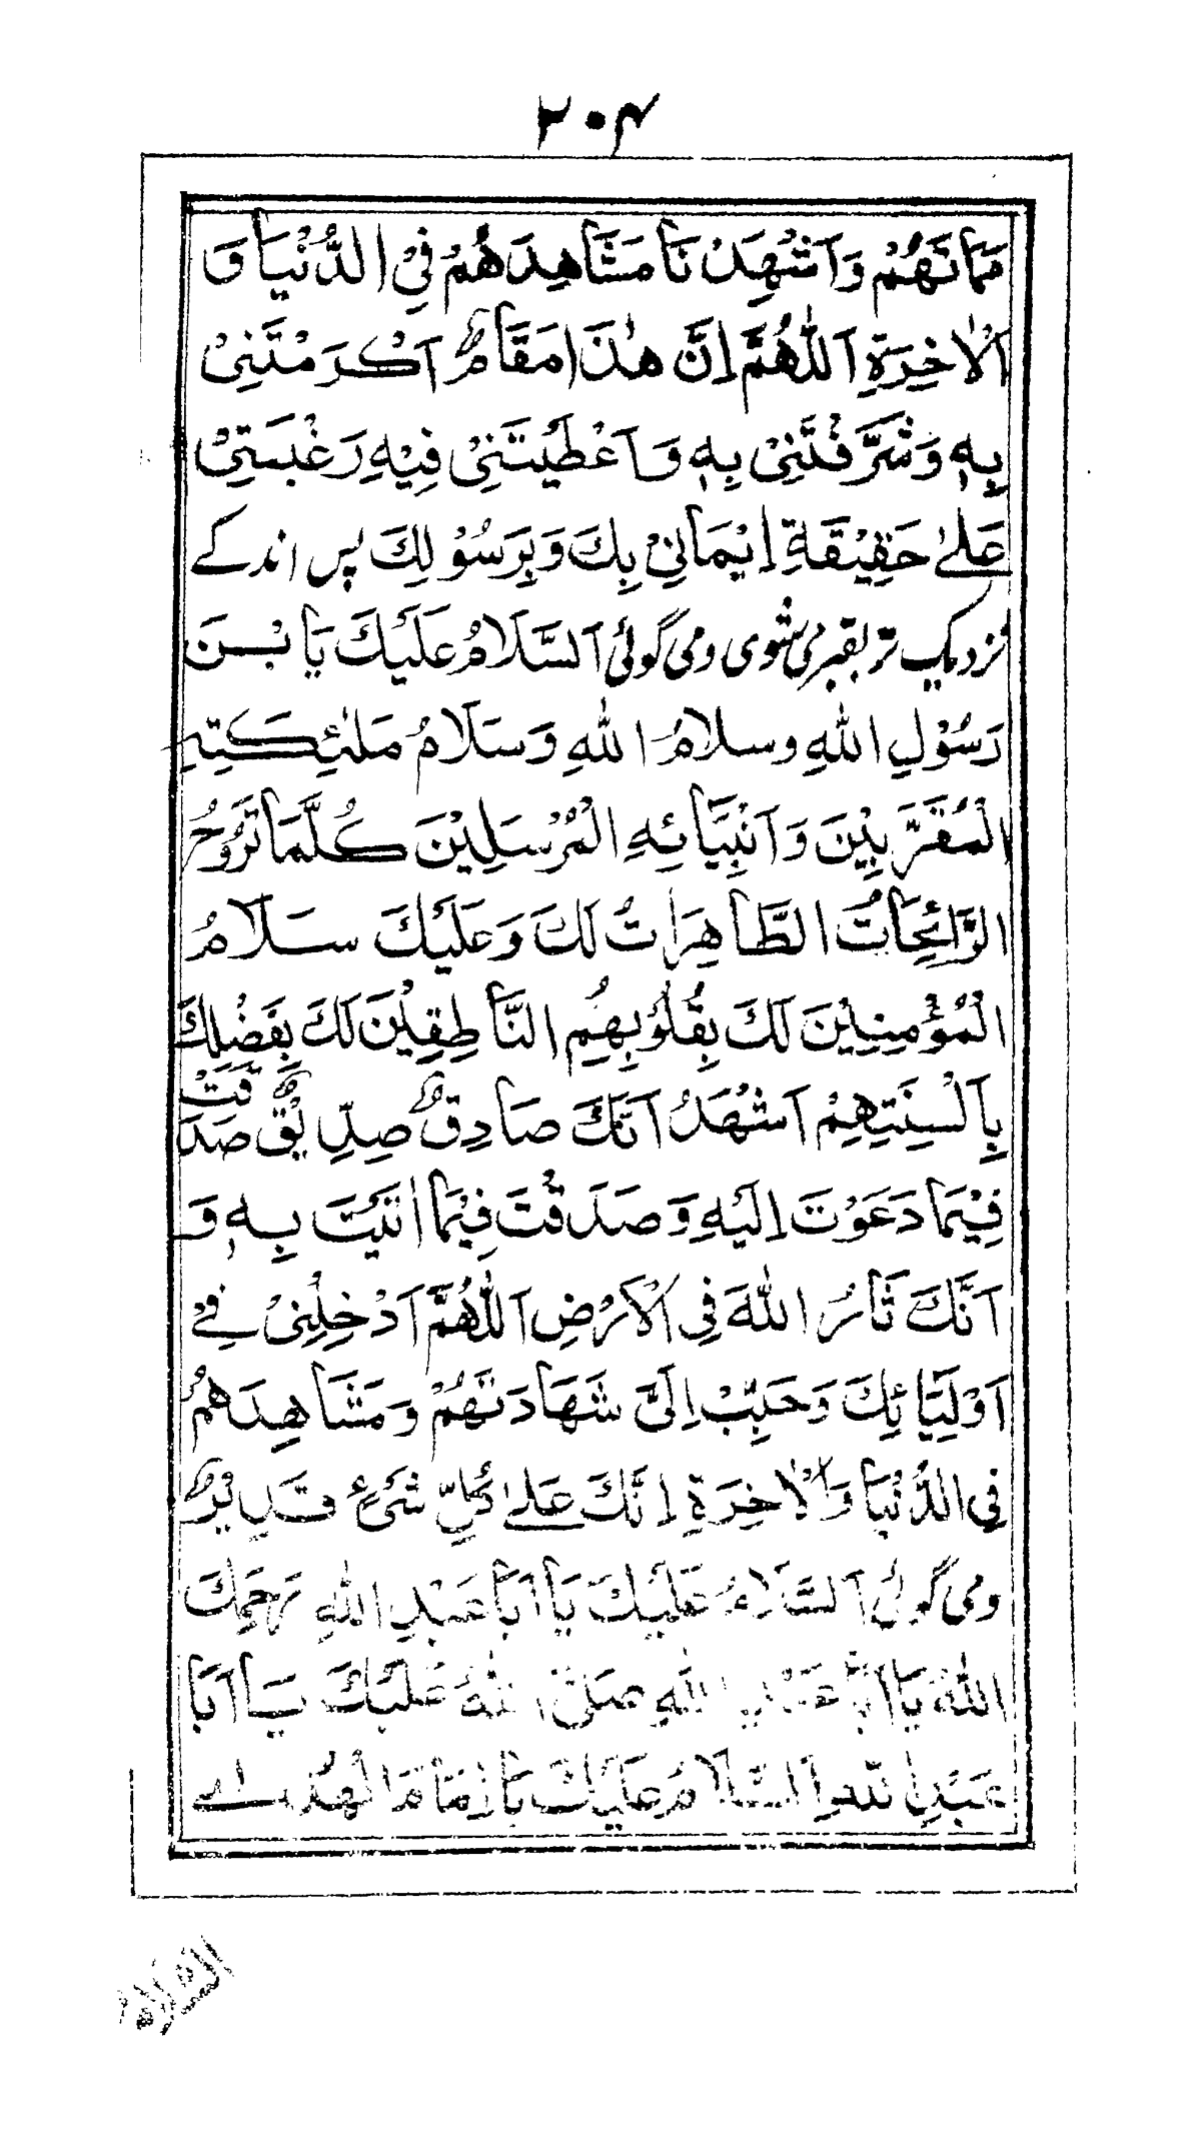 ۲۰۴
مَمَاتَهُمْ وَاَشْهِدْنَا مَشَاهِدَهُمْ فِي الدُّنْيَا وَ
اَلْاٰخِرَةِ اَللّٰهُمَّ اِنَّ هٰذَا مَقَامٌ اَكْرَمْتَنِيْ
بِهٖ وَشَرَّفْتَنِيْ بِهٖ وَاَعْطَيْتَنِيْ فِيْهِ رَغْبَتِيْ
عَلٰى حَقِيْقَةِ اِيْمَانِيْ بِكَ وَبِرَسُوْلِكَ پس اندکے
نزدیک تر بقبر می شوی و می گوئی اَلسَّلَامُ عَلَيْكَ يَا بْنَ
رَسُوْلِ اللهِ وسلامُ اللهِ وَسَلَامُ مَلٰئِكَتِهِ
الْمُقَرَّبِيْنَ وَاَنْبِيَّائِهِ الْمُرْسَلِيْنَ كُلَّمَا تَرُوْحُ
الرَّائِحَاتُ الطَّاهِرَاتُ لَكَ وَعَلَيْكَ سَلَامُ
الْمُؤْمِنِيْنَ لَكَ بِقُلُوْبِهِمِ النَّاطِقِيْنَ لَكَ بِفَضْلِكَ
بِاَلْسِنَتِهِمْ اَشْهَدُ اَنَّكَ صَادِقٌ صِدِّيْقٌ صَدَقْتَ
فِيْمَا دَعَوْتَ اِلَيْهِ وَصَدَقْتَ فِيْمَا اَتَيْتَ بِهٖ وَ
اَنَّكَ ثَارُ اللهَ فِي الْاَرْضِ اَللّٰهُمَّ اَدْخِلْنِيْ فِيْ
اَوْلِيَّائِكَ وَحَبِّبْ اِلَيَّ شَهَادَتَهُمْ وَمَشَاهِدَهُمْ
فِي الدُّنْيَا وَالْاٰخِرَةِ اِنَّكَ عَلٰى كُلِّ شَيْءٍ قَدِيْرٌ
و می گوئی اَلسَّلَامُ عَلَيْكَ يَا اَبَا عَبْدِ اللهِ رَحِمَكَ
اللهُ يَا اَبَا عَبْدِ اللهِ صَلَّى اللهُ عَلَيْكَ يَا اَبَا
عَبْدِ اللهِ اَلسَّلَامُ عَلَيْكَ يَا اِمَامَ الْهُدٰى
السَّلَامُ